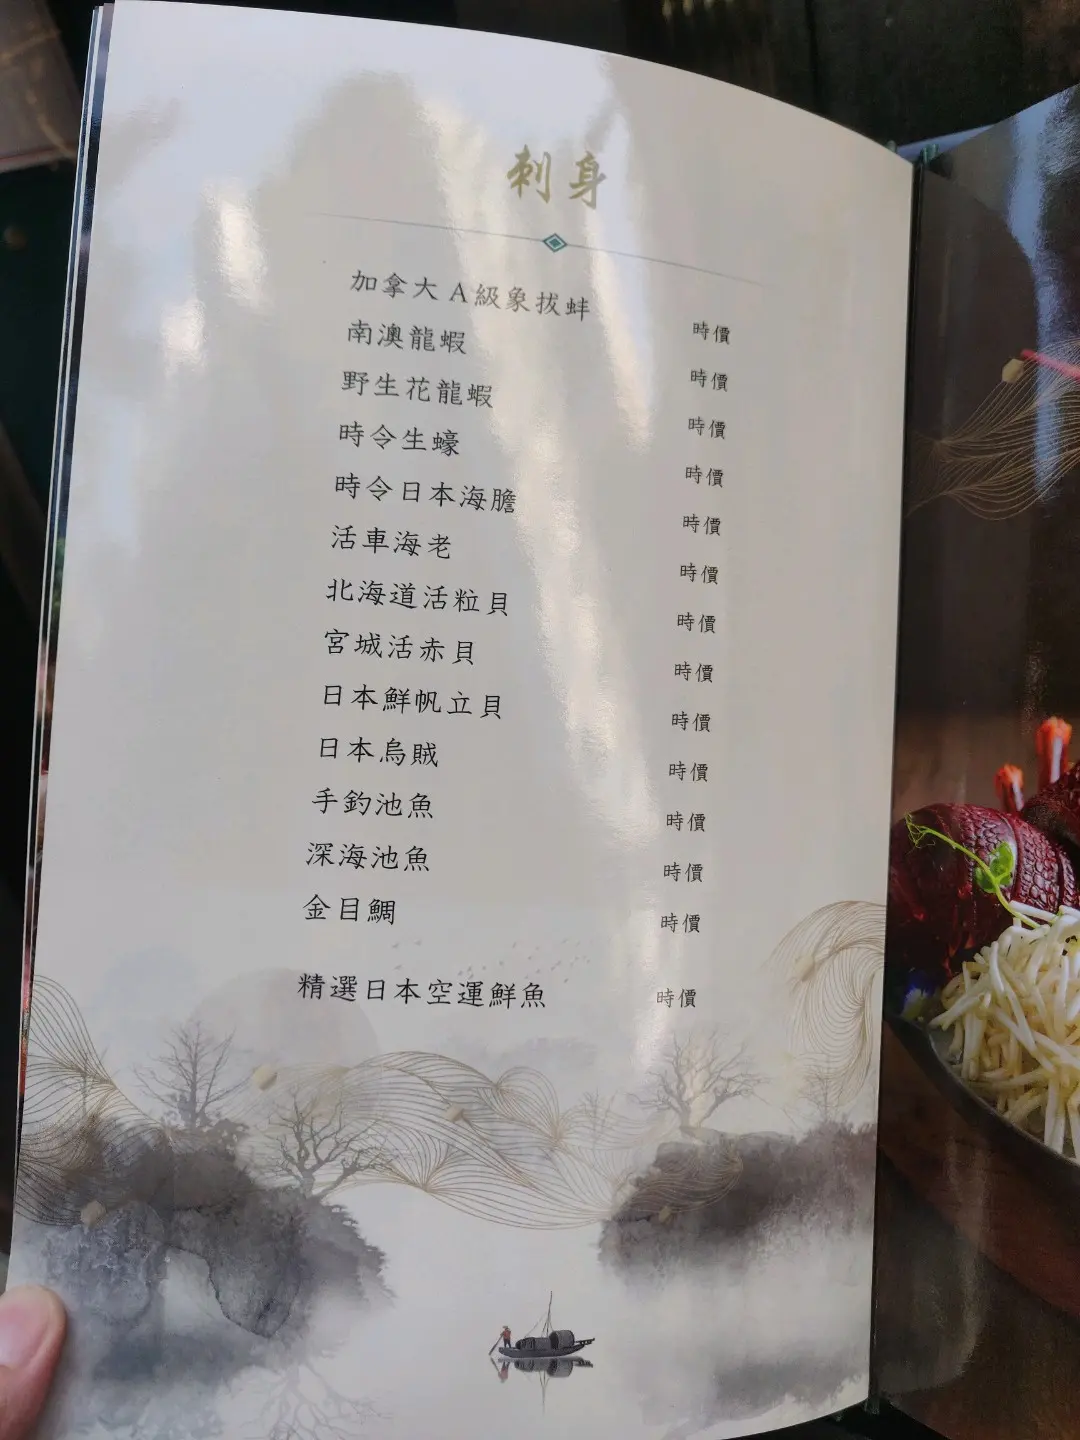 刺身
加拿大A級象拔蚌 時價
南澳龍蝦 時價
野生花龍蝦 時價
時令生蠔 時價
時令日本海膽 時價
活車海老 時價
北海道活粒貝 時價
宮城活赤貝 時價
日本鮮帆立貝 時價
日本烏賊 時價
手釣池魚 時價
深海池魚 時價
金目鯛 時價
精選日本空運鮮魚 時價